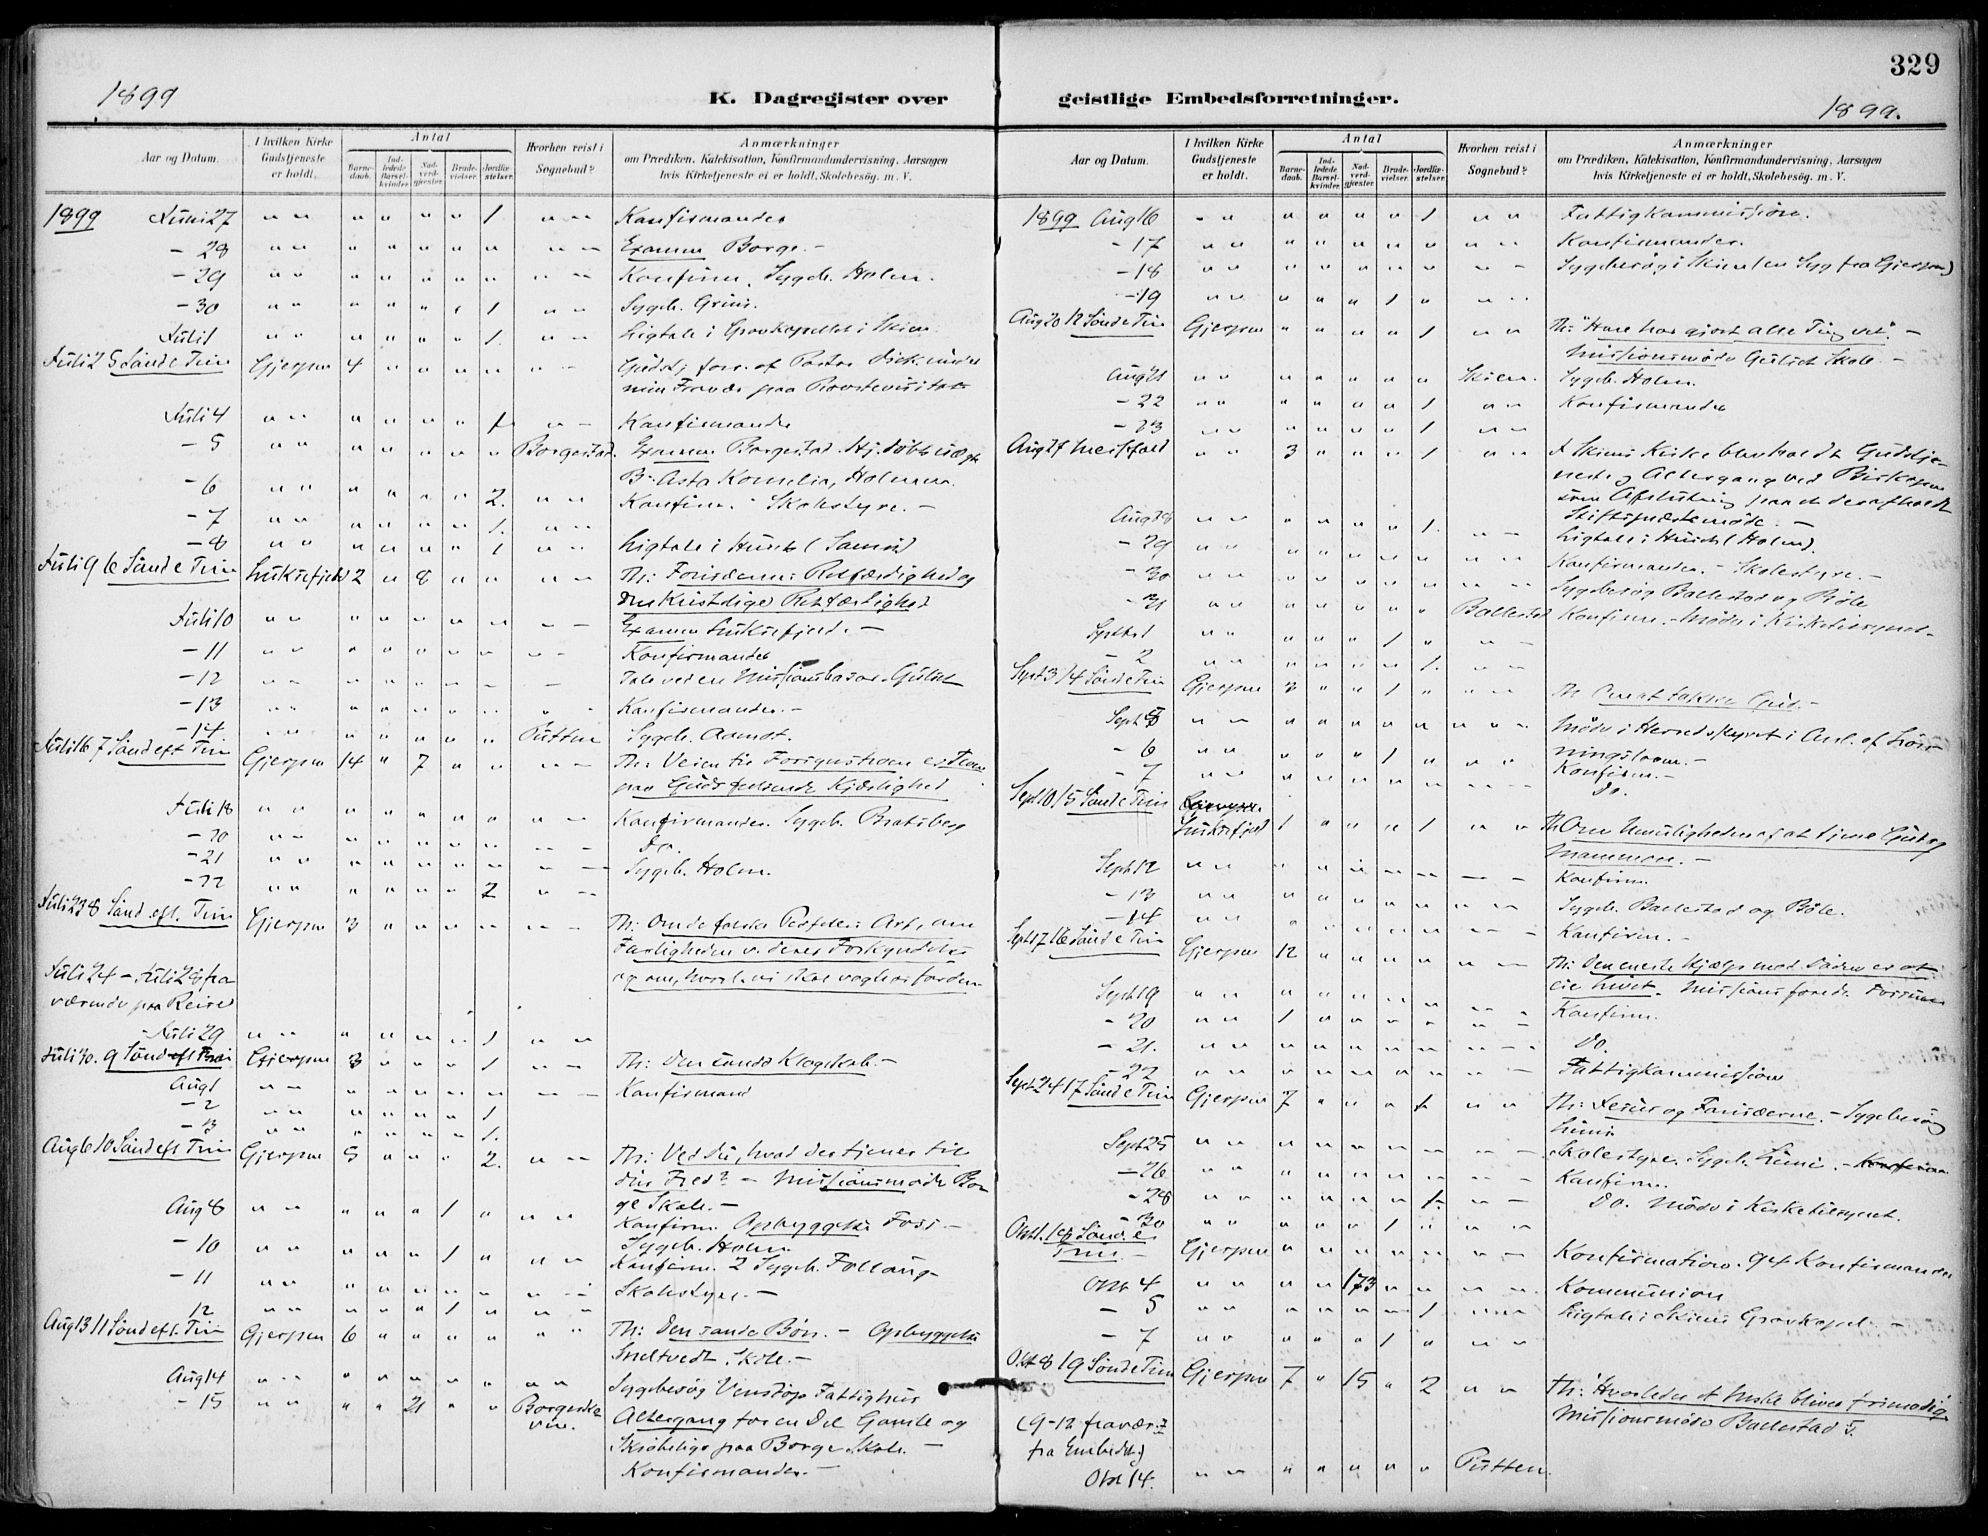 329
1899
K. Dagregister over
geistlige Embedsforretninger.
1899.
Aar og Datum.
I hvilken Kirke Gudstjeneste er holdt.
Antal
Barnedaab.
Indledede Barselkvinder.
Nadverdgjæster.
Brudevielser.
Jordfæstelser.
Hvorhen reist i Sognebud?
Anmærkninger
om Prædiken, Katekisation, Konfirmandundervisning, Aarsagen
hvis Kirketjeneste ei er holdt, Skolebesøg. m. V.
1899 Juni 27 " " " " " " 1 " " Konfirmander
- 28 " " " " " " " " Examen Borge. -
- 29 " " " " " " " " Konfirm. Sygeb. Holm.
- 30 " " " " " 1 1 " " Sygeb. Grini.
Juli 1 " " " " " " 1. " " Ligtale i Gravkapellet i Skien
Juli 2 5 Sønd e Trin Gjerpen 4 " " " " " " Gudstj. forr. af Pastor
min Fravær paa Provstevisitats
Juli 4 " " " " " " 1 " " Konfirmander
- 5 " " " " " " " Borgestad. Examen Borgestad. Hj. døbt
B. Asta Kornelia, Holmen
- 6 " " " " " " 2. " " Konfirm. - Skolestyre. -
- 7 " " " " " " 1. " "
- 8 " " " " " " 1 " " Ligtale i Huset
Juli 9 6 Sønd e Trin Luksefjeld 2 " 8 " " " " Th: Farisæernes Retfærdighed og
den Kristelige Retfærdighed
Juli 10 " " " " " " " " " Examen Luksefjeld. -
- 11 " " " " " " " " " Konfirmander
- 12 " " " " " " " " " Tale ved en Missionsbasar. Gulset
- 13 " " " " " " " " " Konfirmander. -
- 14 " " " " " " " Putten Sygeb. Aamot.
Juli 16 7 Sønd eft Trin Gjerpen 14 " 7 " " " " Th: Veien til
paa Guds Kjærlighed
Juli 18 " " " " " " " " " Konfirmander. Sygeb. Bratsberg
- 20 " " " " " " " " " Do.
- 21 " " " " " " " " " Sygeb. Holm.
- 22 " " " " " " 2 " "
Juli 23 8 Sønd. eft. Trin Gjerpen 3 " " " " " " Th: Om de falske Profeter: Art, om
Farligheden v. deres Forkyndelse
og om, hvorl. vi skal vogte os for dem
Juli 24 - Juli 28 fra
værende paa Reise
- Juli 29 " " " " " " 1 " "
Juli 30. 9 Sønd eft Trin Gjerpen 3 " " " 1 " " Th: Den sande Klogskab. -
Aug 1 " " " " " " " " " Konfirmand
- 2 " " " " " " 1
- 3 " " " " " " 1.
Aug 6 10 Sønd eft Trin Gjerpen 5 " " " 2. " " Th: Ved du, hvad der tjener til
din Fred? - Missionsmøde Bor
ge Skole. -
Aug 8 " " " " " 1 " " " Konfirm. Opbyggelse Foss -
Sygeb. Holm
- 10 " " " " " 1 " " " Konfirm. 2 Sygeb. Follaug -
- 11 " " " " " " " " " Skolestyre. -
12 " " " " " 1 " " "
Aug 13 11 Sønd eft. Trin Gjerpen 6 " " " " " " Th: Den sande Bøn. - Opbyggelse
Smeltvedt. Skole. -
Aug 14 " " " " " " " " " Sygebesøg Venstøp Fattighus
- 15 " " " " 21 " " Altergang for en Del Gamle og
Skrøbelige paa Borge Skole. -
Konfirmander. -
Aar og Datum.
I hvilken Kirke Gudstjeneste er holdt.
Antal
Barnedaab.
Indledede Barselkvinder.
Nadverdgjæster.
Brudevielser.
Jordfæstelser.
Hvorhen reist i Sognebud?
Anmærkninger
om Prædiken, Katekisation, Konfirmandundervisning, Aarsagen
hvis Kirketjeneste ei er holdt, Skolebesøg. m. V.
1899 Aug 16 " " " " " " 1 " " Fattigkommission.
- 17 " " " " " " 1 " " Konfirmander.
- 18 " " " " " " 1 " " Sygebesøg i Skien (en Syg fra Gjerpen)
- 19 " " " " " 1 " " "
Aug 20 12 Sønd e Trin Gjerpen " " " " 1 " " Th: "Han har gjort alle Ting vel". -
Missionsmøde Gulset Skole -
Aug 21 " " " " " " " Skien. Sygeb. Holm.
- 22 " " " " " " 1 " " Konfirmander
- 23 " " " " " " 1 " "
Aug 27 " " 3 " " " 1 " " I Skiens Kirke
Altergang ved Biskopen
som Afslutning paa det der afholdt
Stiftspræstemøde. -
Aug 28 " " " " " " 1. " " Ligtale i Huset (Holm).
- 29 " " " " " " " " " Konfirmander. - Skolestyre. -
- 30 " " " " " " " " " Sygebesøg Ballestad og Bøle
- 31 " " " " " " " Ballestad Konfirm. - Møde i Kirketilsynet -
Septbr 1 " " " " " 1 " " "
- 2 " " " " " " 1. " "
Sept 3 14 Sønd e Trin Gjerpen 3 " " 1 " " " Th Om at takke Gud. -
Sept 5 " " " " " " " " " Møde i Herredsstyret i Anl. af Løn
ningsloven. -
- 6 " " " " " 1 " " " Konfirm. -
- 7 " " " " " " " " " Do.
Sept 10 15 Sønd e Trin Luksefjeld 1 " " " 1 " " Th Om Umuligheden af at tjene Gud og
Mammon. -
Sept 12 " " " " " " " " " Konfirm.
- 13 " " " " " " " " " Sygeb. Ballestad og Bøle.
- 14 " " " " " " " " " Konfirm. -
Sept 17 16 Sønd e Trin Gjerpen 12 " " " " " " Th: Den eneste Hjælp mod Døden er at
eie Livet. Missionsforedr. Fossum
Sept 19 " " " " " " " " " Konfirm.
- 20 " " 1 " " " " " "
- 21. " " " " " " " " " Do.
- 22 " " " " " " " " " Fattigkommission
Sept 24 17 Sønd e Trin Gjerpen 7 " " " 1 " " Th: Jesus og Farisæerne. - Sygebesøg
Limi
Sept 25 " " " " " " " " " Skolestyre. Sygeb. Limi. - Konfirm
- 26 " " " " " " " " " Konfirm.
- 28 " " " " " " 1. " " Do. Møde i Kirketilsynet.
- 30 " " " " " 1 " " "
Oktbr 1. 18 Sønd. e Trin. - Gjerpen " " " " " " " Konfirmation. 94 Konfirmander
Oktbr 4 " " " " 173 " " " " Kommunion
- 5 " " " " " " 1 " " Ligtale i Skiens Gravkapel. -
- 7 " " " " " 1 " " "
Okt 8 19 Sønd e Trin Gjerpen 7 " 15 " 2 " " Th: Hvorledes et Mske bliver frimodig
Missionsmøde Ballestad S.
(9-12 fravær.
fra Embedet)
Okt 14. " " " " " " " Putten.